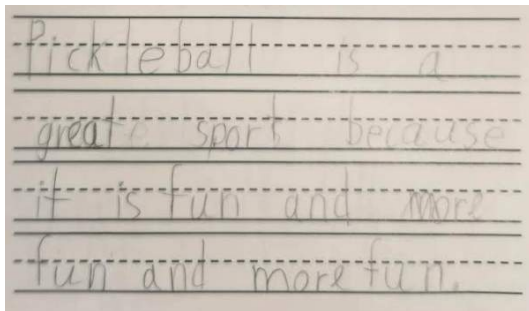 Pickleball is a
great sport because
it is fun and more
fun and more fun.